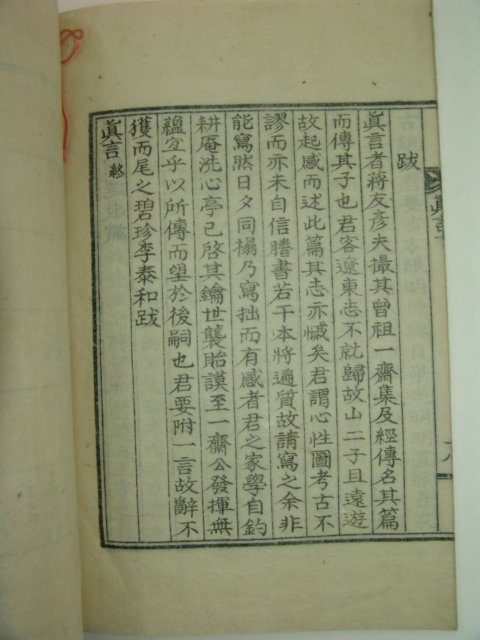 眞言
跋
眞言者蔣友彦夫撮其曾祖一齋集及經傳名其篇
而傳其子也君客遼東志不就歸故山二子且遠遊
故起感而述此篇其志亦慽矣君謂心性圖考古不
謬而亦未自信謄書若干本將遍質故請寫之余非
能寫然日夕同榻乃寫拙而有感者君之家學自釣
耕庵洗心亭已啓其鑰世襲貽謨至一齋公發揮無
蘊宜乎以所傳而望於後嗣也君要附一言故辭不
獲而尾之碧珍李泰和跋
眞言 終